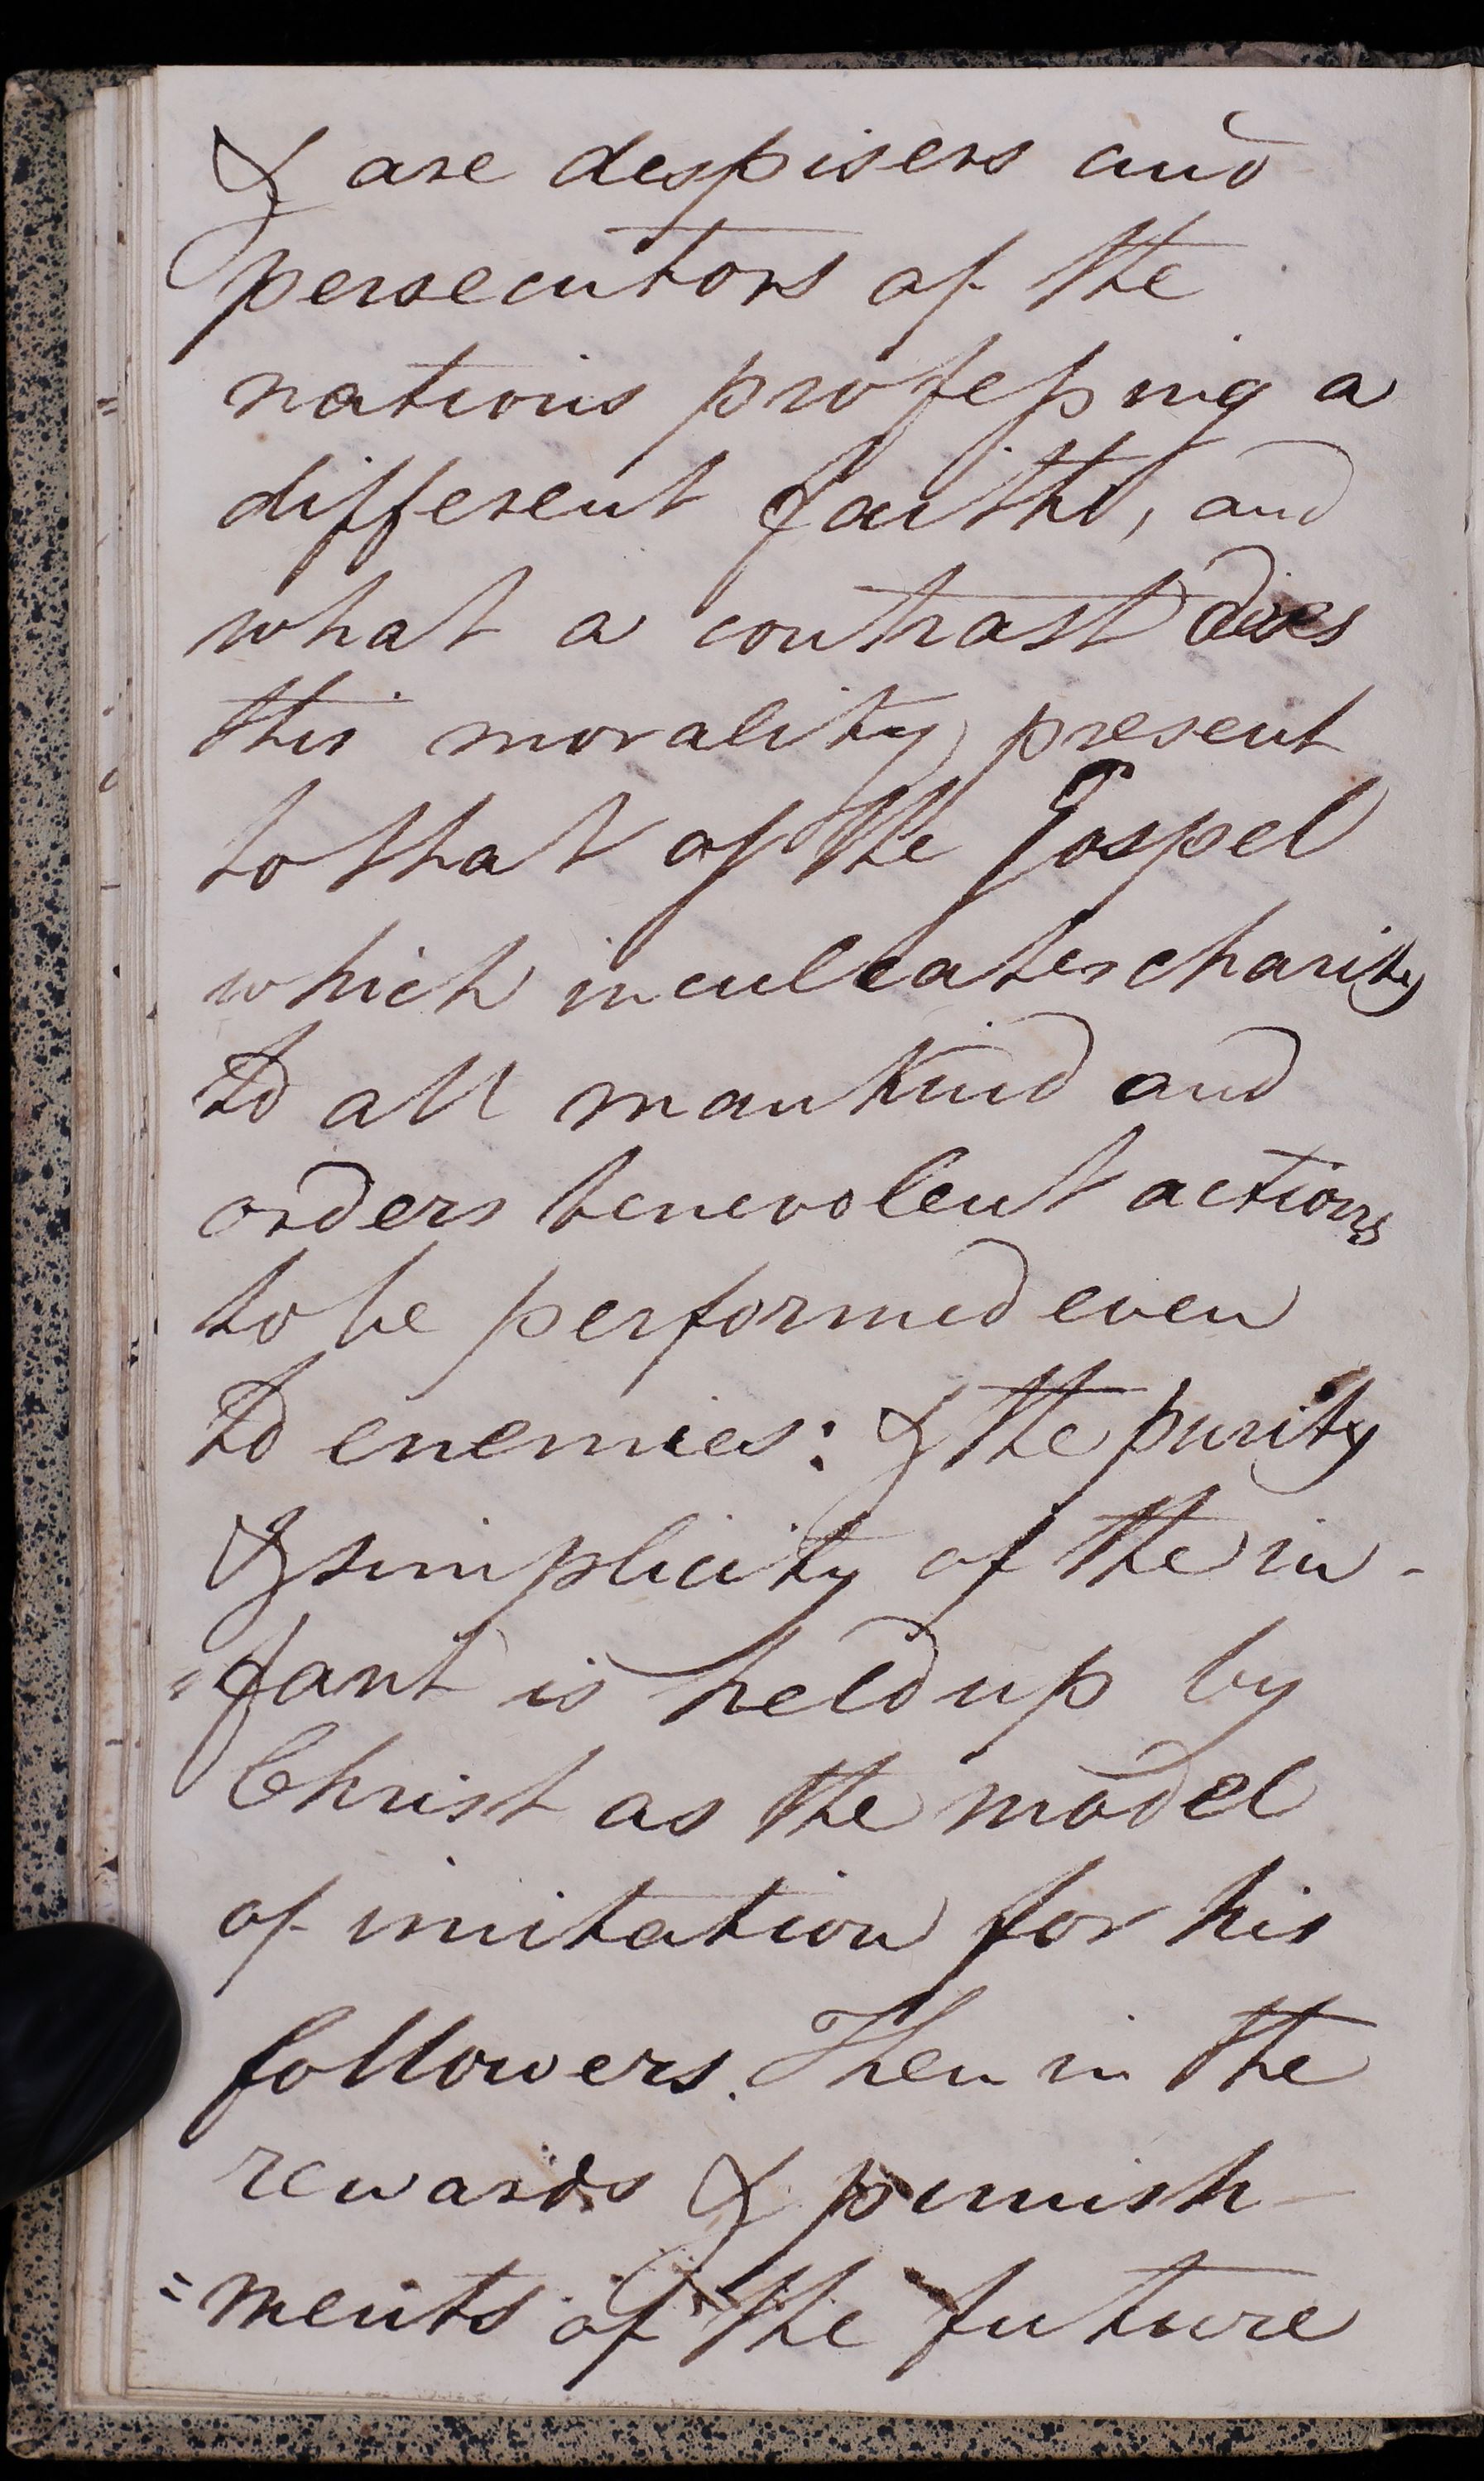 & are despisers and
persecutors of the
nations professing a
different faith, and
what a contrast does
this morality present
to that of the Gospel
which inculcates charity
to all mankind and
orders benevolent actions
to be performed even
to enemies: & the purity
& simplicity of the in-
"fant is held up by
Christ as the model
of imitation for his
followers. Then in the
rewards & punish-
=ments of the future